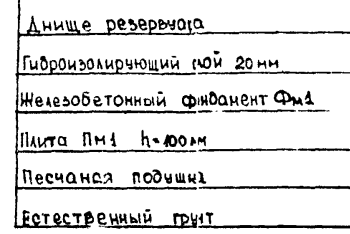 Днище резервуара
Гидроизолирующий слой 20мм
Железобетонный фундамент Фм1
Плита Пм1 h=100мм
Песчаная подушка
Естественный грунт